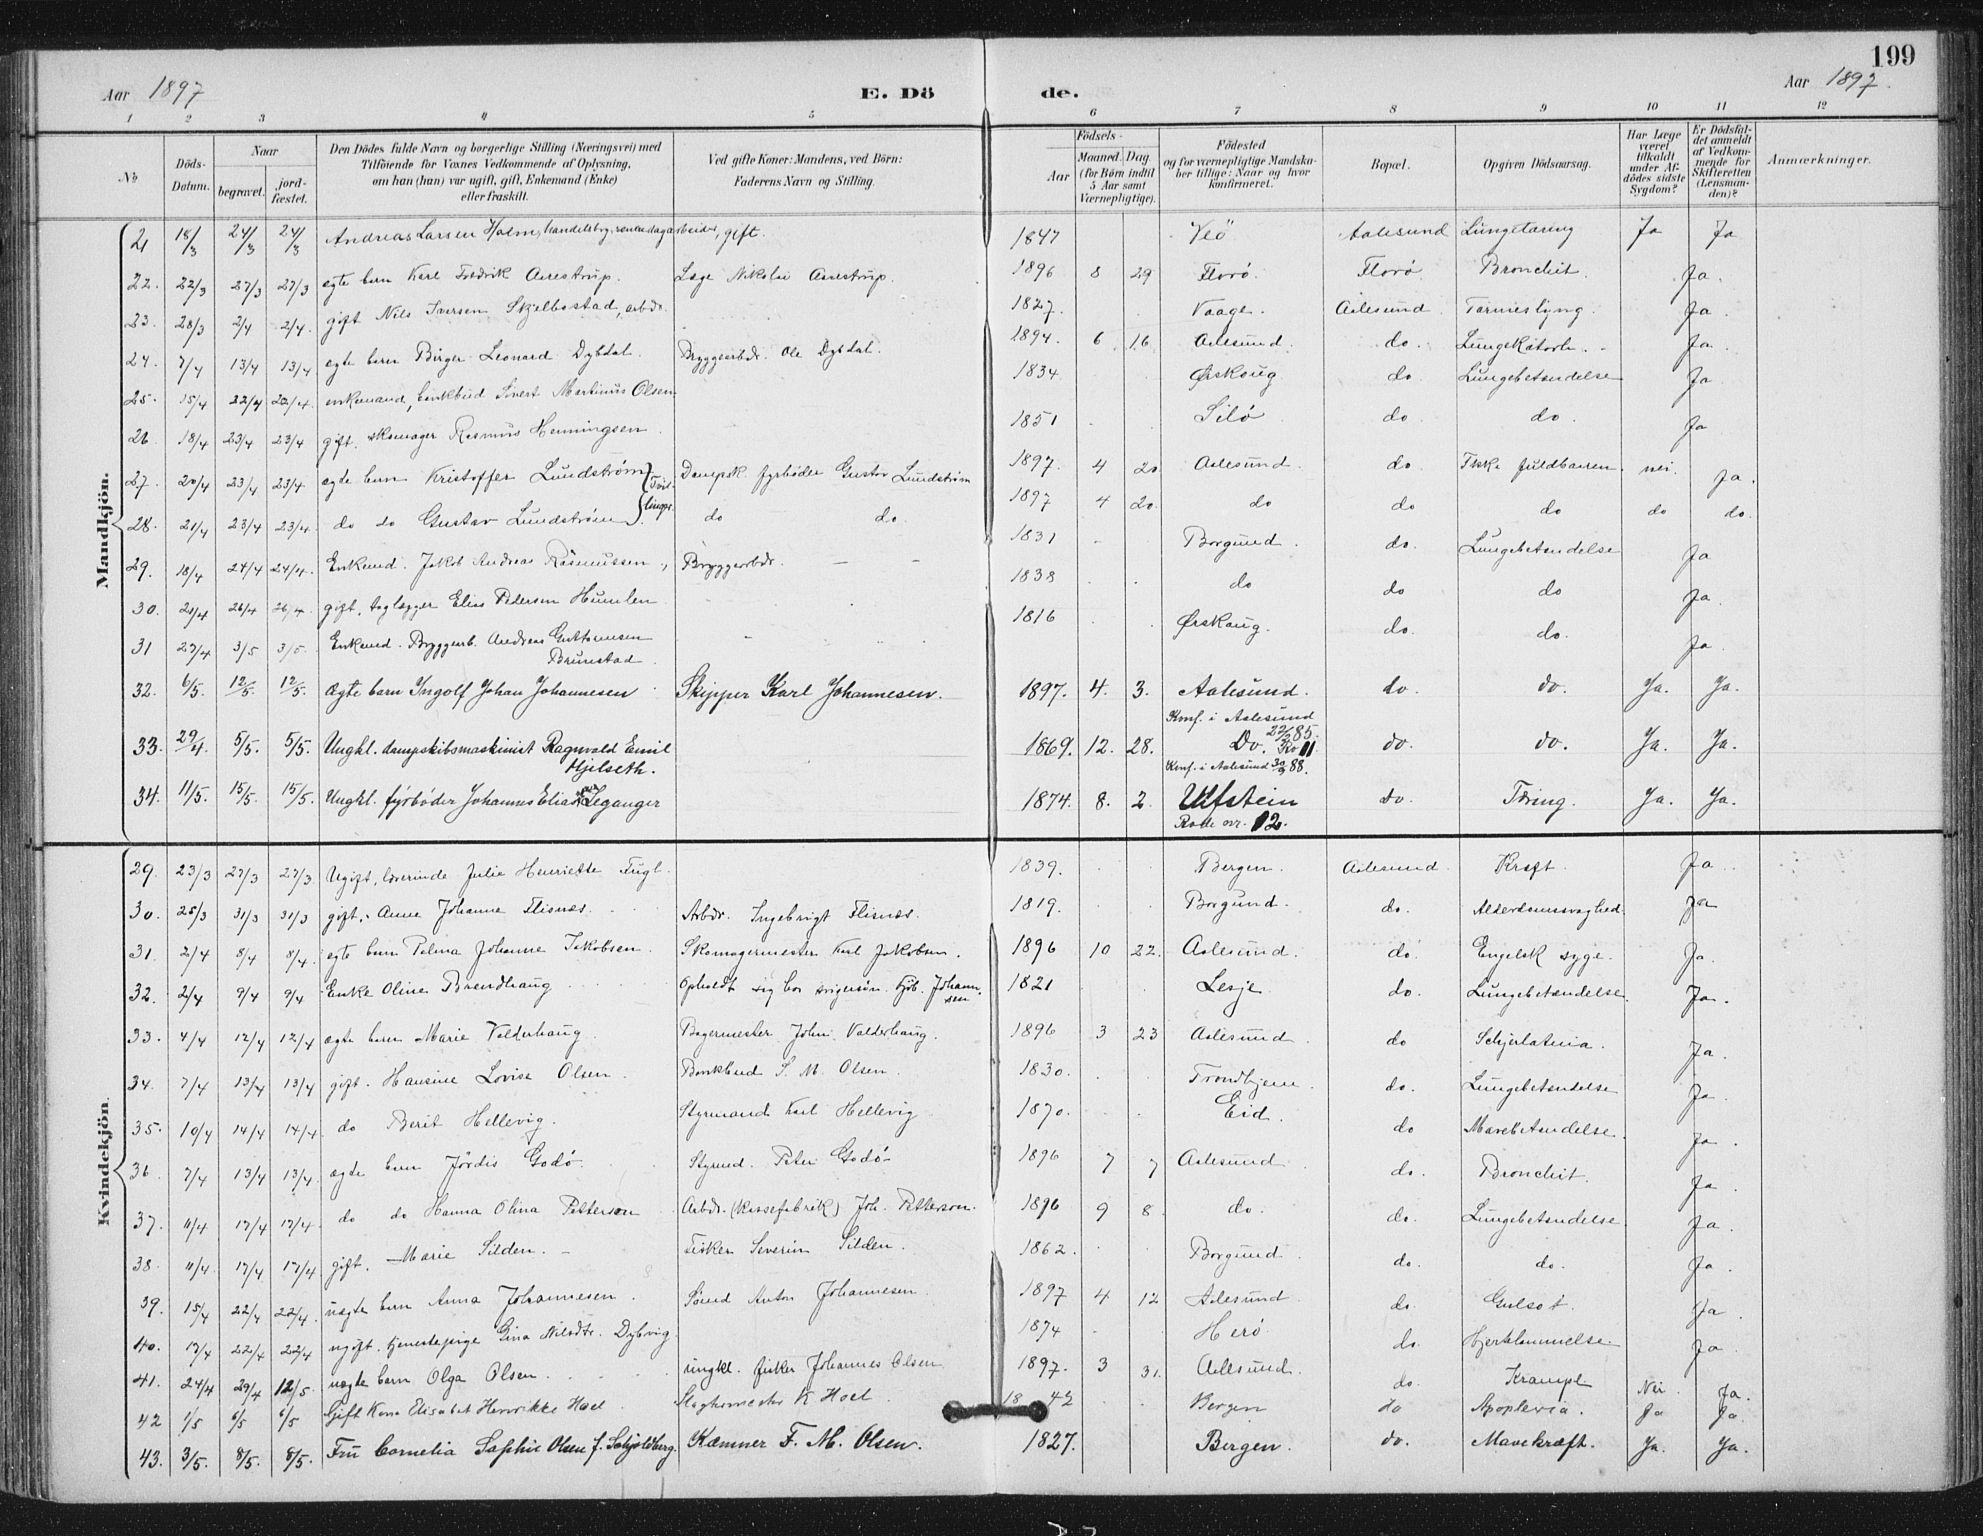 199
Aar 1897 E. Dö de. Aar 1897.
1 2 3 4 5 6 7 8 9 10 11 12
No
Döds-Datum.
Naar
begravet.
jord-fæstet.
Den Dödes fulde Navn og borgerlige Stilling (Næringsvei) med
Tilföiende for Voxnes Vedkommende af Oplysning,
om han (hun) var ugift, gift, Enkemand (Enke)
eller fraskilt.
Ved gifte Koner: Mandens, ved Börn:
Faderens Navn og Stilling.
Födsels-
Aar
Maaned. Dag
(for Börn indtil
5 Aar samt
Værnepligtige).
Födested
og for værnepligtige Mandska-
ber tillige: Naar og hvor
konfirmeret.
Bopæl.
Opgiven Dödsaarsag.
Har Læge
været
tilkaldt
under Af-
dödes sidste
Sygdom?
Er Dödsfal-
det anmeldt
af Vedkom-
mende for
Skifteretten
(Lensman-
den)?
Anmærkninger.
Mandkjön.
21 18/3 24/3 24/3 Andreas Larsen Holm, handelsbg, senere dagarbeider, gift. 1847 Veö Aalesund Lungetæring Ja Ja
22. 22/3 27/3 27/3 ægte barn Karl Fredrik Aarestrup. Læge Nikolai Aarestrup. 1896 8 29 Florø. Florø Bronchit. Ja.
23. 28/3 2/4 2/4. gift Nils Iversen Skjelbostad, arbdr 1827. Vaage. Aalesund Tarmeslyng. Ja.
24. 7/4 13/4 13/4 ægte barn Birger Leonard Dybdal. Bryggearbdr. Ole Dybdal. 1894. 6 16 Aalesund. do. Lungekatarh. Ja.
25. 15/4 22/4 22/4. enkemand, bankbud Sivert Martinus Olsen 1834. Ørskoug do Lungebetændelse Ja
26 18/4 23/4 23/4 gift. skomager Rasmus Henningsen 1851 Silø do do. Ja
27. 20/4 23/4 23/4 ægte barn Kristoffer Lundstrøm } Tvil- Dampsk. fyrbøder Gustav Lundstrøm 1897. 4 20 Aalesund. do. Ikke fuldbaaren. nei. Ja.
28. 21/4 23/4 23/4. do do Gustav Lundstrøm } linger. do do. 1897 4 20. do do do do do.
29. 18/4 24/4 24/4. Enkemd. Jakob Andreas Rasmussen, Bryggearbdr. 1831 Borgund. do. Lungebetændelse Ja
30. 21/4 26/4 26/4. gift, taglægger Elias Pedersen Humlen 1838 do do do Ja.
31 27/4 3/5 3/5. Enkemd. Bryggearb. Andreas Guttormsen 1816 Ørskoug. do. do. Ja.
Brunstad.
32. 6/5. 12/5. 12/5. Ægte barn Ingolf Johan Johannesen Skipper Karl Johannesen. 1897. 4. 3. Aalesund. do. do. Ja. Ja.
Konf. i Aalesund
33. 29/4. 5/5. 5/5. Ungkl. dampskibsmaskinist Ragnvald Emil 1869. 12. 28. Do. 85. do. do. Ja. Ja.
Hjelseth. Konf. i Aalesund 88.
34. 11/5. 15/5. 15/5. Ungkl. fyrbøder Johannes Elias Leganger 1874. 8. 2. Ulfstein do. Tæring. Ja. Ja.
Rode nr. 12.
Kvindekjön.
29. 23/3 27/3 27/3. Ugift, lærerinde Julie Henriette Fugl. 1839. Bergen. Aalesund. Kræft. Ja
30. 25/3 31/3 31/3 gift. Anne Johanne Flisnes. Arbdr. Ingebrigt Flisnes. 1819. Borgund. do. Alderdomssvaghed. Ja
31. 2/4 8/4 8/4. ægte barn Palma Johanne Jakobsen. Skomagermester Karl Jakobsen. 1896 10 22. Aalesund. do Engelsk syge. Ja.
32. 2/4 9/4 9/4 Enke Oline Brendhaug Opholdt sig hos svigersøn. Kjøb. Johann- 1821 Lesje. do. Lungebetændelse. Ja.
sen
33. 4/4 12/4 12/4 ægte barn Marie Valderhaug Bagermester John Valderhaug. 1896 3 23 Aalesund. do Ja.
34. 7/4 13/4 13/4 gift. Hansine Lovise Olsen. Bankbud S. M. Olsen. 1830. Trondhjem. do. Lungebetændelse Ja.
35. 10/4 14/4 14/4 do Berit Hellevig. Styrmand Karl Hellevig. 1870. Eid. do Mavebetændelse. Ja.
36 7/4 13/4 13/4 ægte barn Jördis Godö. Styrmd. Peter Godö 1896 7 7 Aalesund do. Bronchit. Ja.
37. 11/4 17/4 17/4. do do Hanna Olina Petterson Arbdr. (Kassefabrik) Joh. Petterson. 1896 9 8. do. do. Lungebetændelse. Ja.
38. 11/4 17/4 17/4 gift. Marie Silden. Fisker Severin Silden. 1862. Borgund. do. do. Ja.
39. 15/4 22/4 22/4. uægte barn Anna Johannesen. Sömd Anton Johannesen 1897 4 12 Aalesund. do. Gulsot. Ja.
40. 17/4 22/4 22/4 ugift. tjenestepige Gina Nilsdtr. Dybvig. 1874 Herö do. Hjertelammelse. Ja.
41. 24/4 29/4 12/5. uægte barn Olga Olsen. ungkl. fisker Johannes Olsen 1897. 3 31. Aalesund. do. Krampe. Nei. Ja.
42 1/5 6/5 6/5 Gift Kone Elisabet Henrikke Hoel. Slagtermester K Hoel. 1842 Bergen do Apoplexia. Ja Ja.
43. 3/5. 8/5. 8/5. Fru Cornelia Sophie Olsen f. Schjoldberg. Kæmner F. M. Olsen. 1827. Bergen. do. Mavekræft. Ja. Ja.